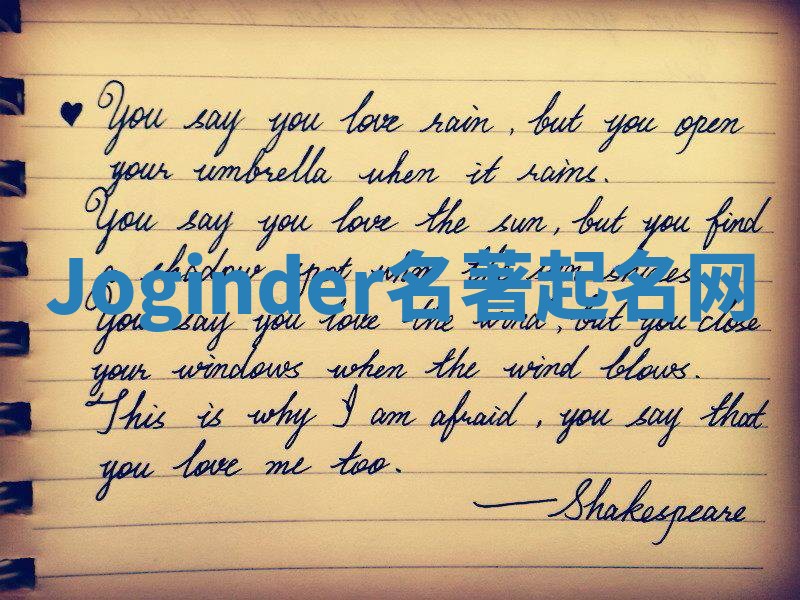 ♥ You say you love rain, but you open
your umbrella when it rains.
You say you love the sun, but you find
a shadow spot when the sun shines.
Joginder名著起名网
You say you love the wind, but you close
your windows when the wind blows.
This is why I am afraid, you say that
you love me too.
—Shakespeare